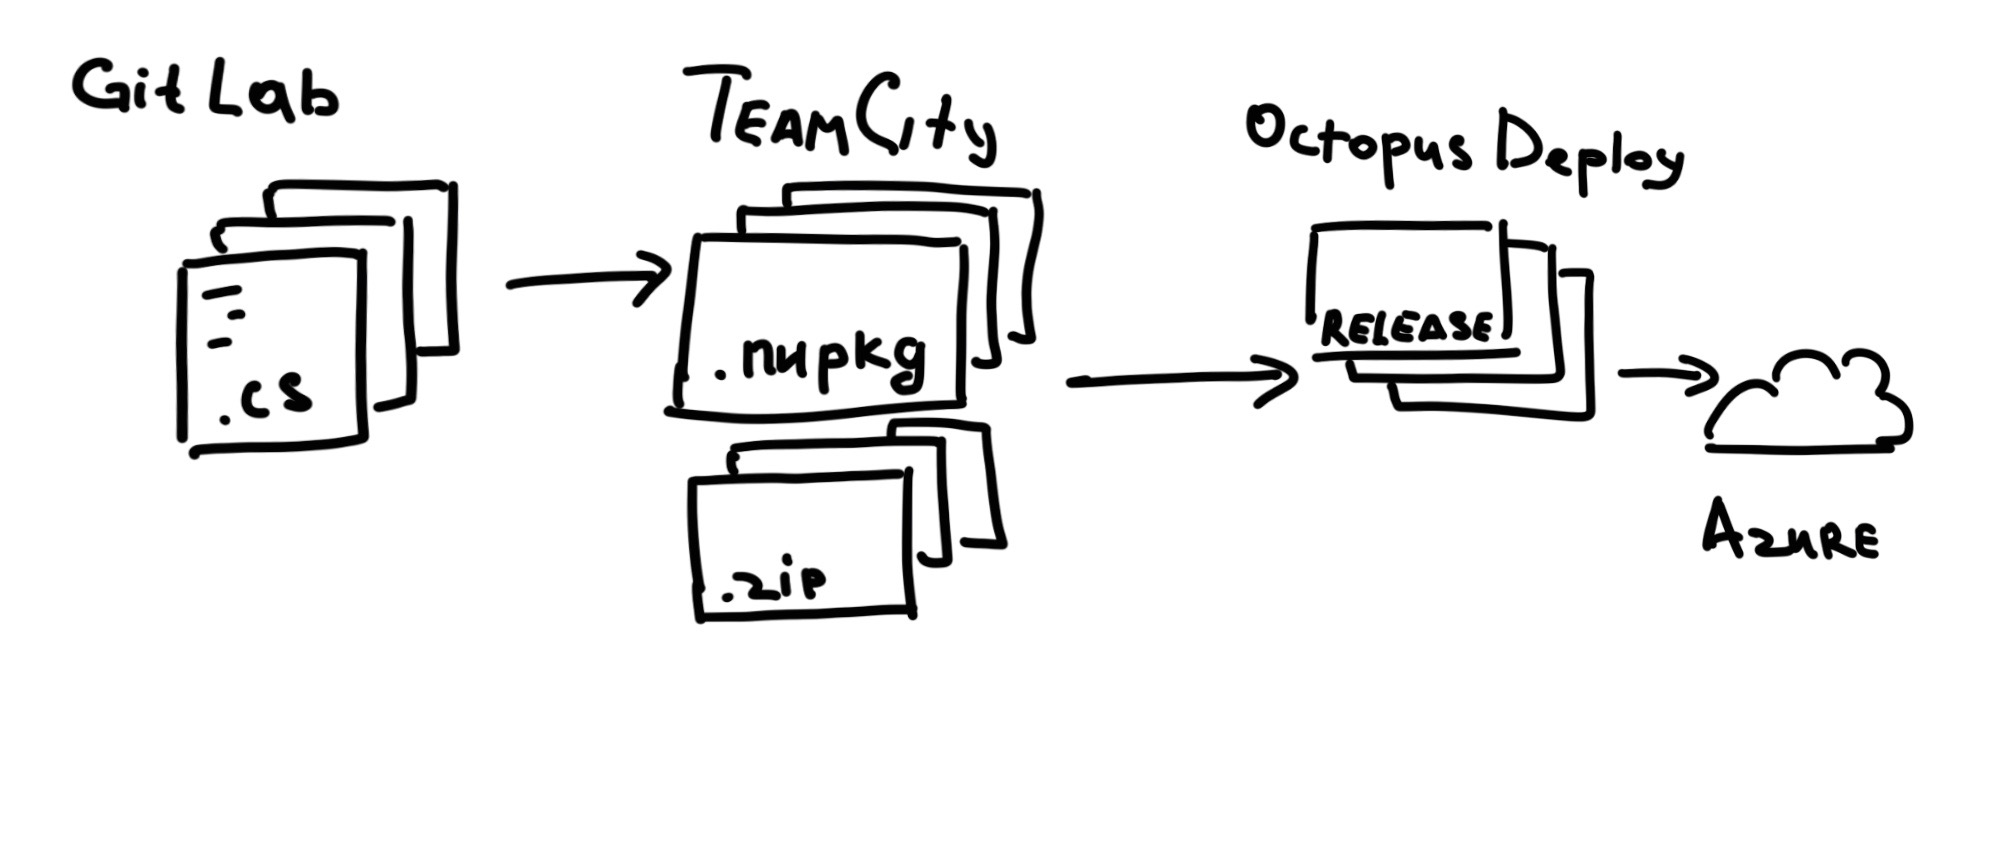 GitLab
.cs
TEAMCity
.nupkg
.zip
Octopus Deploy
RELEASE
AZURE